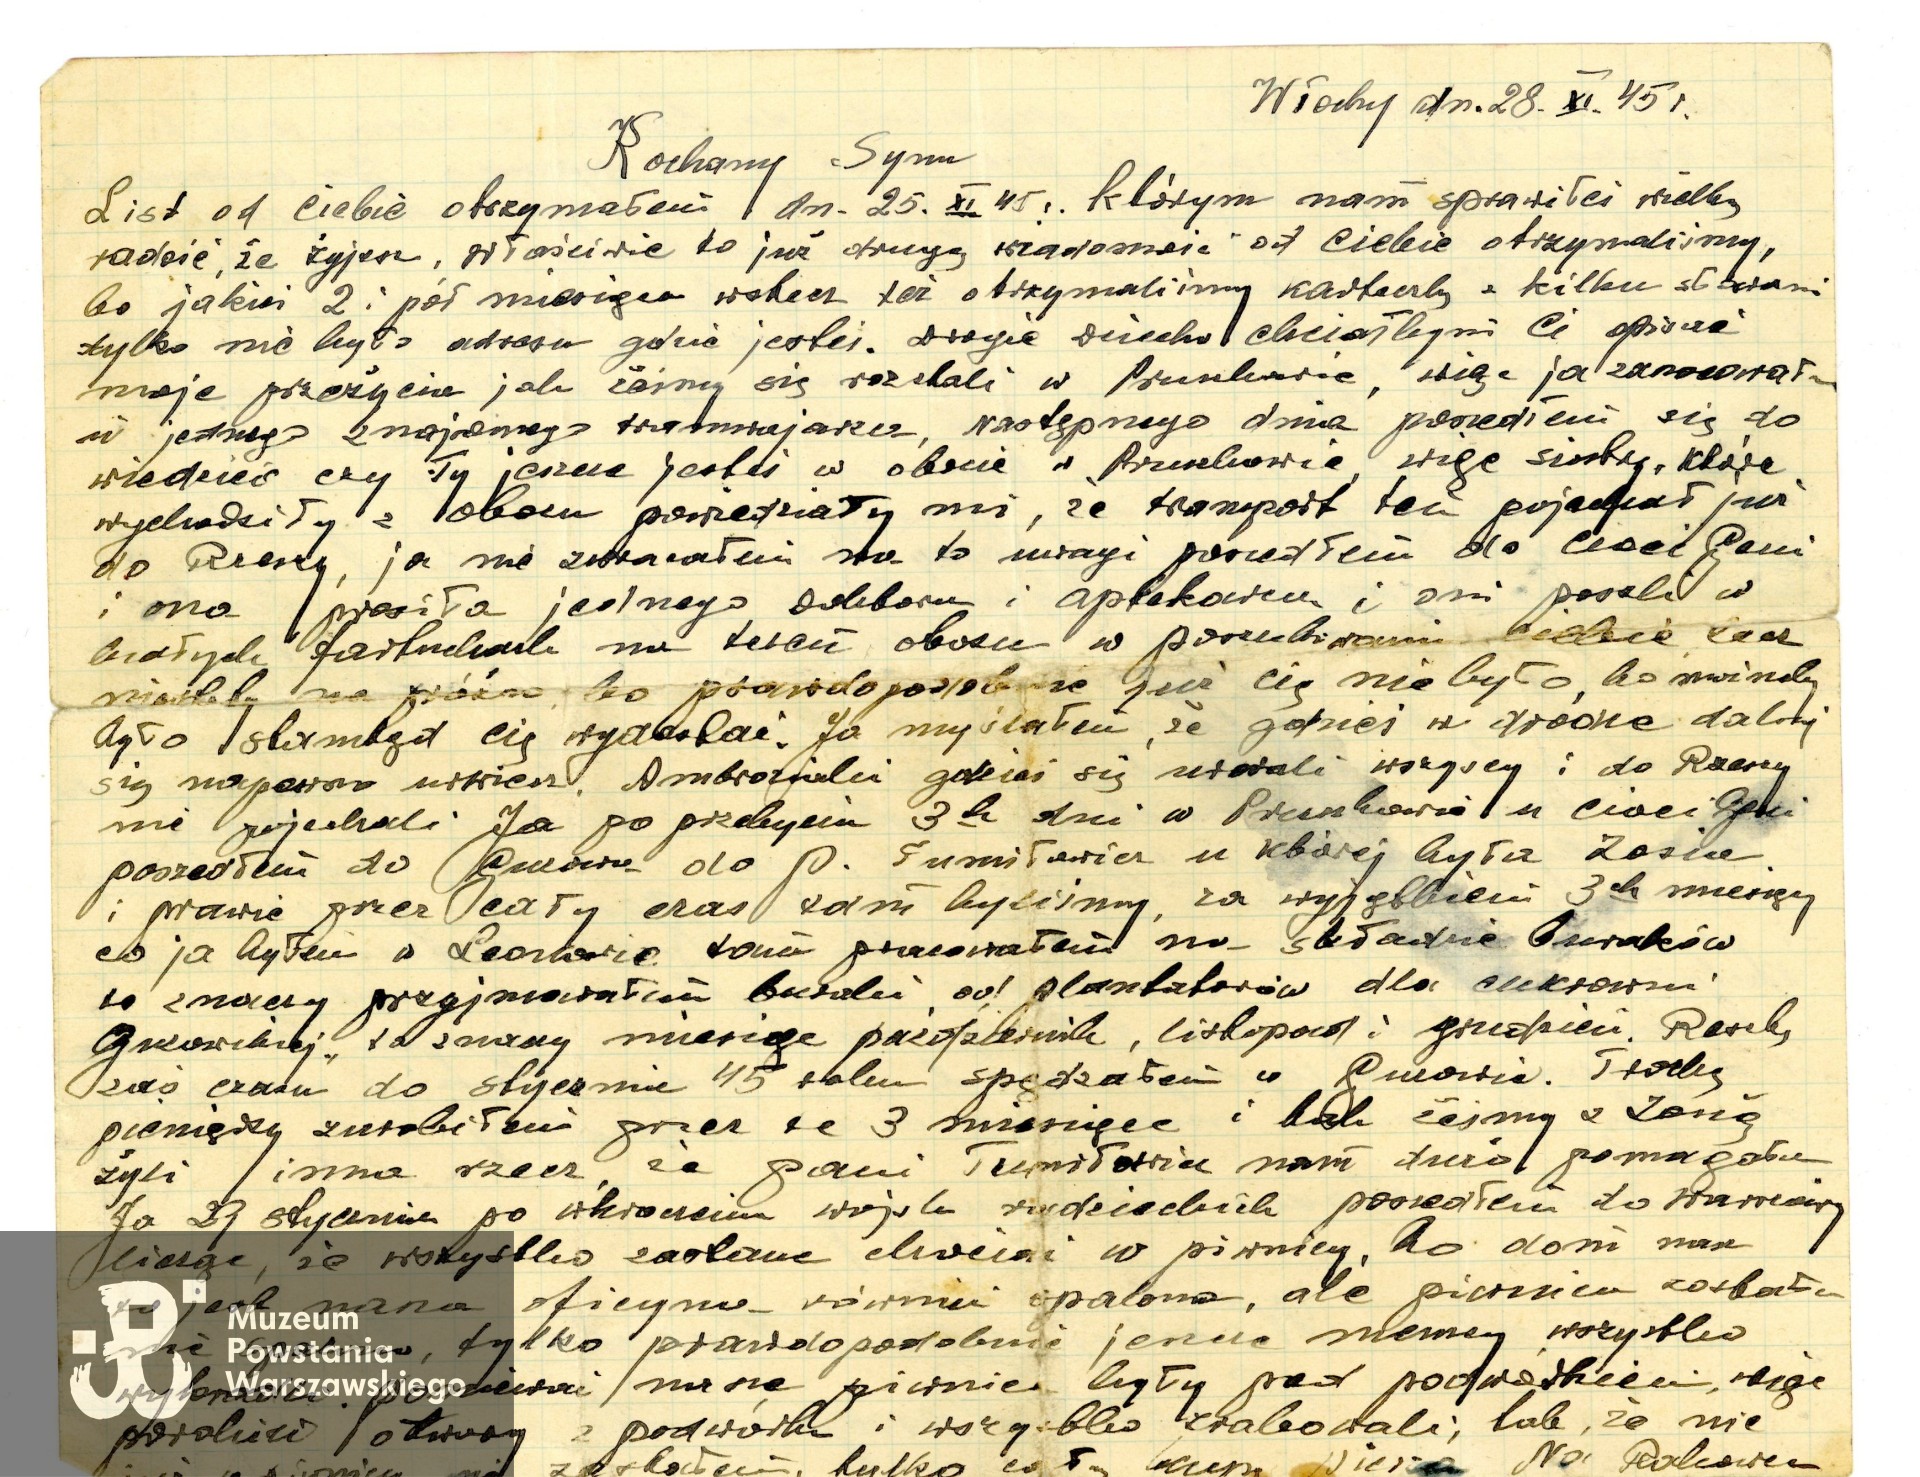 Włochy dn. 28. XI. 45 r.
Kochany Synu
List od Ciebie otrzymałem dn. 25. XI 45 r. którym nam sprawiłeś wielką
radość, że żyjesz, właściwie to już drugą wiadomość od Ciebie otrzymaliśmy,
bo jakieś 2 i pół miesiąca wstecz też otrzymaliśmy karteczkę z kilku słowami
tylko nie było adresu gdzie jesteś. Drogie dziecko chciałbym Ci opisać
moje przeżycia jak żeśmy się rozstali w Pruszkowie, więc ja zanocowałem
u jednego znajomego tramwajarza, następnego dnia poszedłem się do
wiedzieć czy Ty jeszcze jesteś w obozie w Pruszkowie, więc siostry, które
wychodziły z obozu powiedziały mi, że transport ten pojechał już
do Rzeszy, ja nie zwracałem na to uwagi poszedłem do cioci Geni
i ona prosiła jednego doktora i aptekarza i oni poszli w
białych fartuchach na teren obozu w poszukiwaniu ciebie lecz
niestety na próżno, bo prawdopodobnie już cię nie było, bo mieli
było stamtąd cię wydostać. Ja myślałem, że gdzieś w drodze dalej
się napewno urwiesz. Ambroziaki gdzieś się urwali wszyscy i do Rzeszy
nie pojechali. Ja po przebyciu 3ch dni w Pruszkowie u cioci Geni
poszedłem do Guzowa do p. Tumiłowicz u której była Zosia
i prawie przez cały czas tam byliśmy, za wyjątkiem 3ch miesięcy
co ja byłem w tam pracowałem na składzie buraków
to znaczy przyjmowałem buraki od plantatorów dla cukrowni
Guzowskiej, to znaczy miesiące październik, listopad i grudzień. Resztę
zaś czasu do stycznia 45 roku spędzałem w Guzowie. Trochę
pieniędzy zarobiłem przez te 3 miesiące i tak żeśmy z Zosią
żyli inna rzecz, że pani Tumiłowicz nam dużo pomagała
Ja 27 stycznia po wkroczeniu wojsk radzieckich poszedłem do Warszawy
licząc, że wszystko zastanę chociaż w piwnicy, bo dom nasz
to jest nasza oficyna również spalona, ale piwnica została
nie, tylko prawdopodobnie jeszcze niemcy wszystko
ponieważ nasze piwnice były pod podwórkiem, więc
porobili otwory z podwórka i wszystko zrabowali, tak, że nic
zastałem, tylko cały Na Rakowcu
Muzeum
Powstania
Warszawskiego